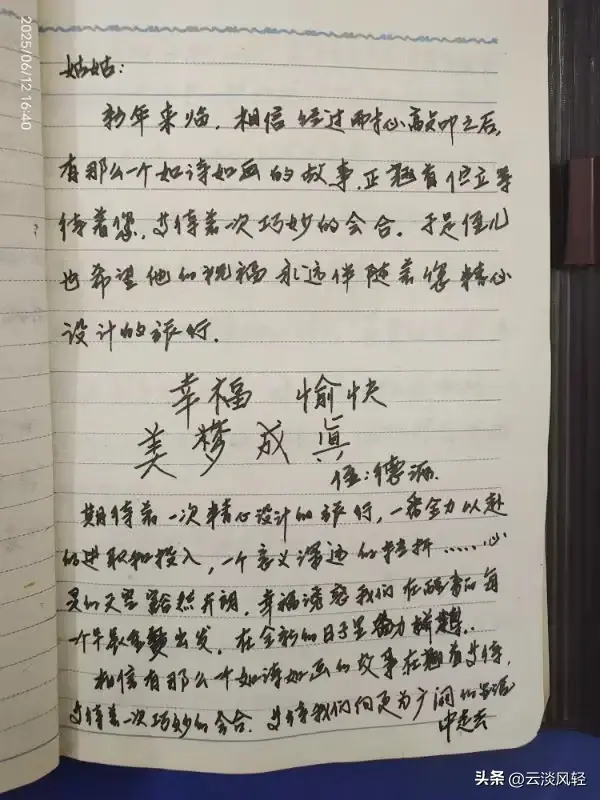 2025/06/12 16:40
姑姑：
新年来临，相信经过 心高 之后，
有那么一个如诗如画的故事，正翘首伫立等
待着您，等待着一次巧妙的会合。于是侄儿
也希望他的祝福永远伴随着您精心
设计的旅行。
幸福 愉快
美梦成真
侄：德
期待着一次精心设计的旅行，一番全力以赴
的进取和投入，一个意义深远的转折……心
灵的天空豁然开朗，幸福诱惑我们在 每
一个早晨 出发。在全新的日子里奋力拼搏。
相信有那么一个如诗如画的故事在翘首等待，
等待着一次巧妙的会合。等待我们向更为广阔的生活
中走去
头条 @云淡风轻